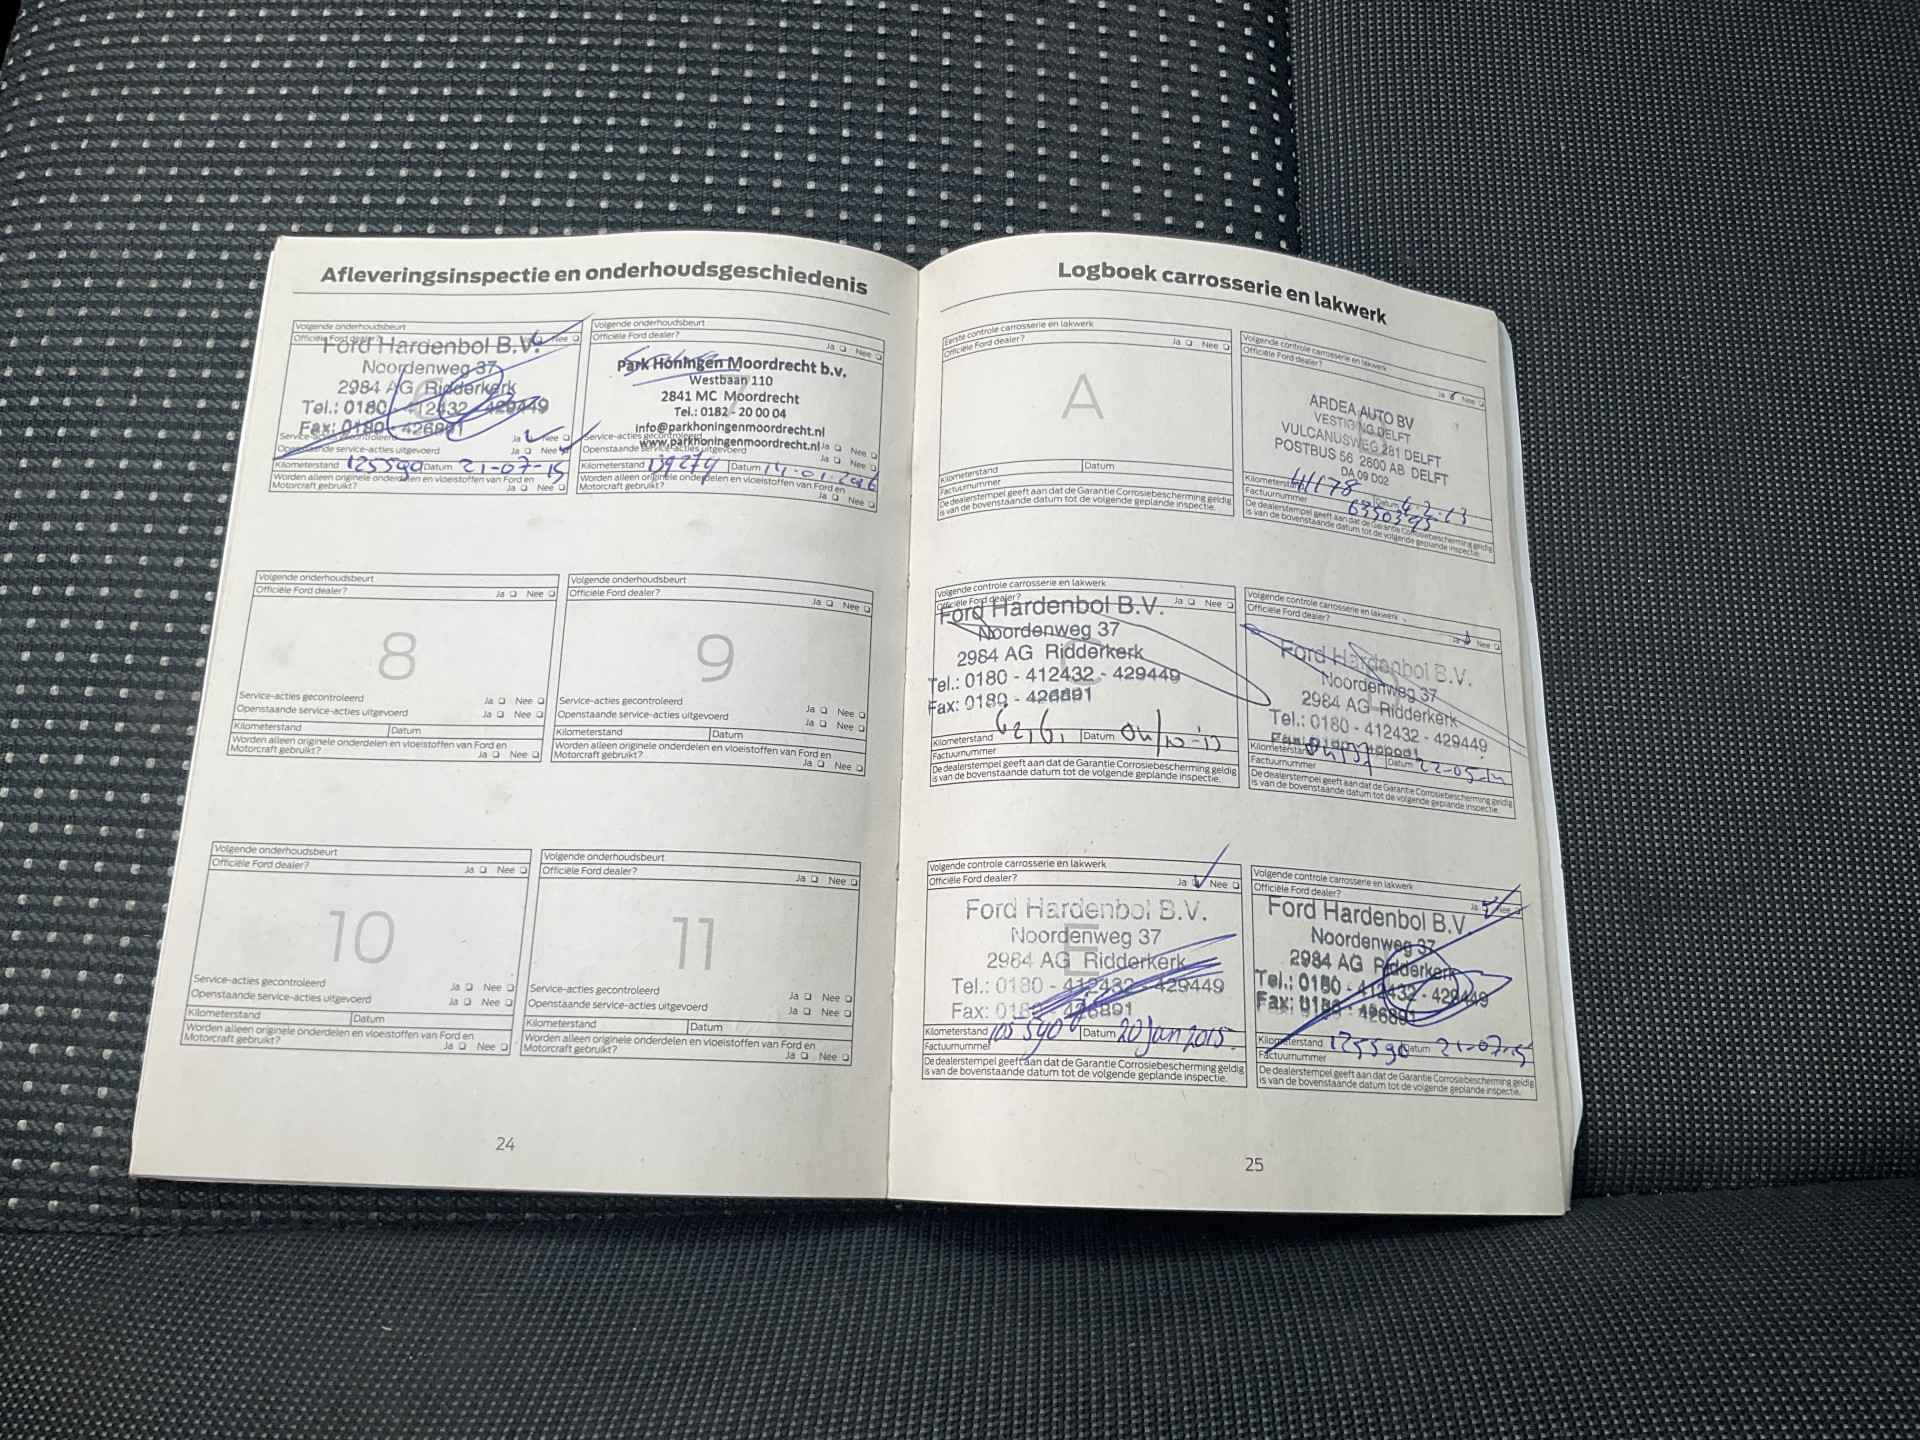 Afleveringsinspectie en onderhoudsgeschiedenis
Volgende onderhoudsbeurt
Officiële Ford dealer? Nee
Ford Hardenbol B.V.
Noordenweg 37
2984 AG Ridderkerk
Tel.: 0180 - 412432 - 429449
Fax: 0180 - 426891
Service-acties gecontroleerd Ja Nee
Openstaande service-acties uitgevoerd Ja Nee
Kilometerstand 125590 Datum 21-07-15
Worden alleen originele onderdelen en vloeistoffen van Ford en
Motorcraft gebruikt? Ja Nee
Volgende onderhoudsbeurt
Officiële Ford dealer? Ja Nee
Park Honingen Moordrecht b.v.
Westbaan 110
2841 MC Moordrecht
Tel.: 0182 - 20 00 04
info@parkhoningenmoordrecht.nl
www.parkhoningenmoordrecht.nl
Service-acties gecontroleerd Ja Nee
Openstaande service-acties uitgevoerd Ja Nee
Kilometerstand 139274 Datum 14-01-2016
Worden alleen originele onderdelen en vloeistoffen van Ford en
Motorcraft gebruikt? Ja Nee
Volgende onderhoudsbeurt
Officiële Ford dealer? Ja Nee
8
Service-acties gecontroleerd Ja Nee
Openstaande service-acties uitgevoerd Ja Nee
Kilometerstand Datum
Worden alleen originele onderdelen en vloeistoffen van Ford en
Motorcraft gebruikt? Ja Nee
Volgende onderhoudsbeurt
Officiële Ford dealer? Ja Nee
9
Service-acties gecontroleerd Ja Nee
Openstaande service-acties uitgevoerd Ja Nee
Kilometerstand Datum
Worden alleen originele onderdelen en vloeistoffen van Ford en
Motorcraft gebruikt? Ja Nee
Volgende onderhoudsbeurt
Officiële Ford dealer? Ja Nee
10
Service-acties gecontroleerd Ja Nee
Openstaande service-acties uitgevoerd Ja Nee
Kilometerstand Datum
Worden alleen originele onderdelen en vloeistoffen van Ford en
Motorcraft gebruikt? Ja Nee
Volgende onderhoudsbeurt
Officiële Ford dealer? Ja Nee
11
Service-acties gecontroleerd Ja Nee
Openstaande service-acties uitgevoerd Ja Nee
Kilometerstand Datum
Worden alleen originele onderdelen en vloeistoffen van Ford en
Motorcraft gebruikt? Ja Nee
24
Logboek carrosserie en lakwerk
Eerste controle carrosserie en lakwerk
Officiële Ford dealer? Ja Nee
A
Kilometerstand Datum
Factuurnummer
De dealerstempel geeft aan dat de Garantie Corrosiebescherming geldig
is van de bovenstaande datum tot de volgende geplande inspectie.
Volgende controle carrosserie en lakwerk
Officiële Ford dealer? Ja Nee
ARDEA AUTO BV
VESTIGING DELFT
VULCANUSWEG 281 DELFT
POSTBUS 56 2600 AB DELFT
DA 09 D02
Kilometerstand 41178 Datum 4-2-13
Factuurnummer 6350395
De dealerstempel geeft aan dat de Garantie Corrosiebescherming geldig
is van de bovenstaande datum tot de volgende geplande inspectie.
Volgende controle carrosserie en lakwerk
Officiële Ford dealer? Ja Nee
Ford Hardenbol B.V.
Noordenweg 37
2984 AG Ridderkerk
Tel.: 0180 - 412432 - 429449
Fax: 0180 - 426891
C
Kilometerstand Datum 04/10-13
Factuurnummer
De dealerstempel geeft aan dat de Garantie Corrosiebescherming geldig
is van de bovenstaande datum tot de volgende geplande inspectie.
Volgende controle carrosserie en lakwerk
Officiële Ford dealer? Ja Nee
Ford Hardenbol B.V.
Noordenweg 37
2984 AG Ridderkerk
Tel.: 0180 - 412432 - 429449
Kilometerstand Datum 22-05-14
Factuurnummer
De dealerstempel geeft aan dat de Garantie Corrosiebescherming geldig
is van de bovenstaande datum tot de volgende geplande inspectie.
Volgende controle carrosserie en lakwerk
Officiële Ford dealer? Ja Nee
Ford Hardenbol B.V.
Noordenweg 37
E
2984 AG Ridderkerk
Tel.: 0180 - 412432 - 429449
Fax: 0180 - 426891
Kilometerstand 105590 Datum 20 Jan 2015
Factuurnummer
De dealerstempel geeft aan dat de Garantie Corrosiebescherming geldig
is van de bovenstaande datum tot de volgende geplande inspectie.
Volgende controle carrosserie en lakwerk
Officiële Ford dealer? Ja Nee
Ford Hardenbol B.V.
Noordenweg 37
2984 AG Ridderkerk
Tel.: 0180 - 412432 - 429449
Fax: 0180 - 426891
Kilometerstand 125590 Datum 21-07-15
Factuurnummer
De dealerstempel geeft aan dat de Garantie Corrosiebescherming geldig
is van de bovenstaande datum tot de volgende geplande inspectie.
25